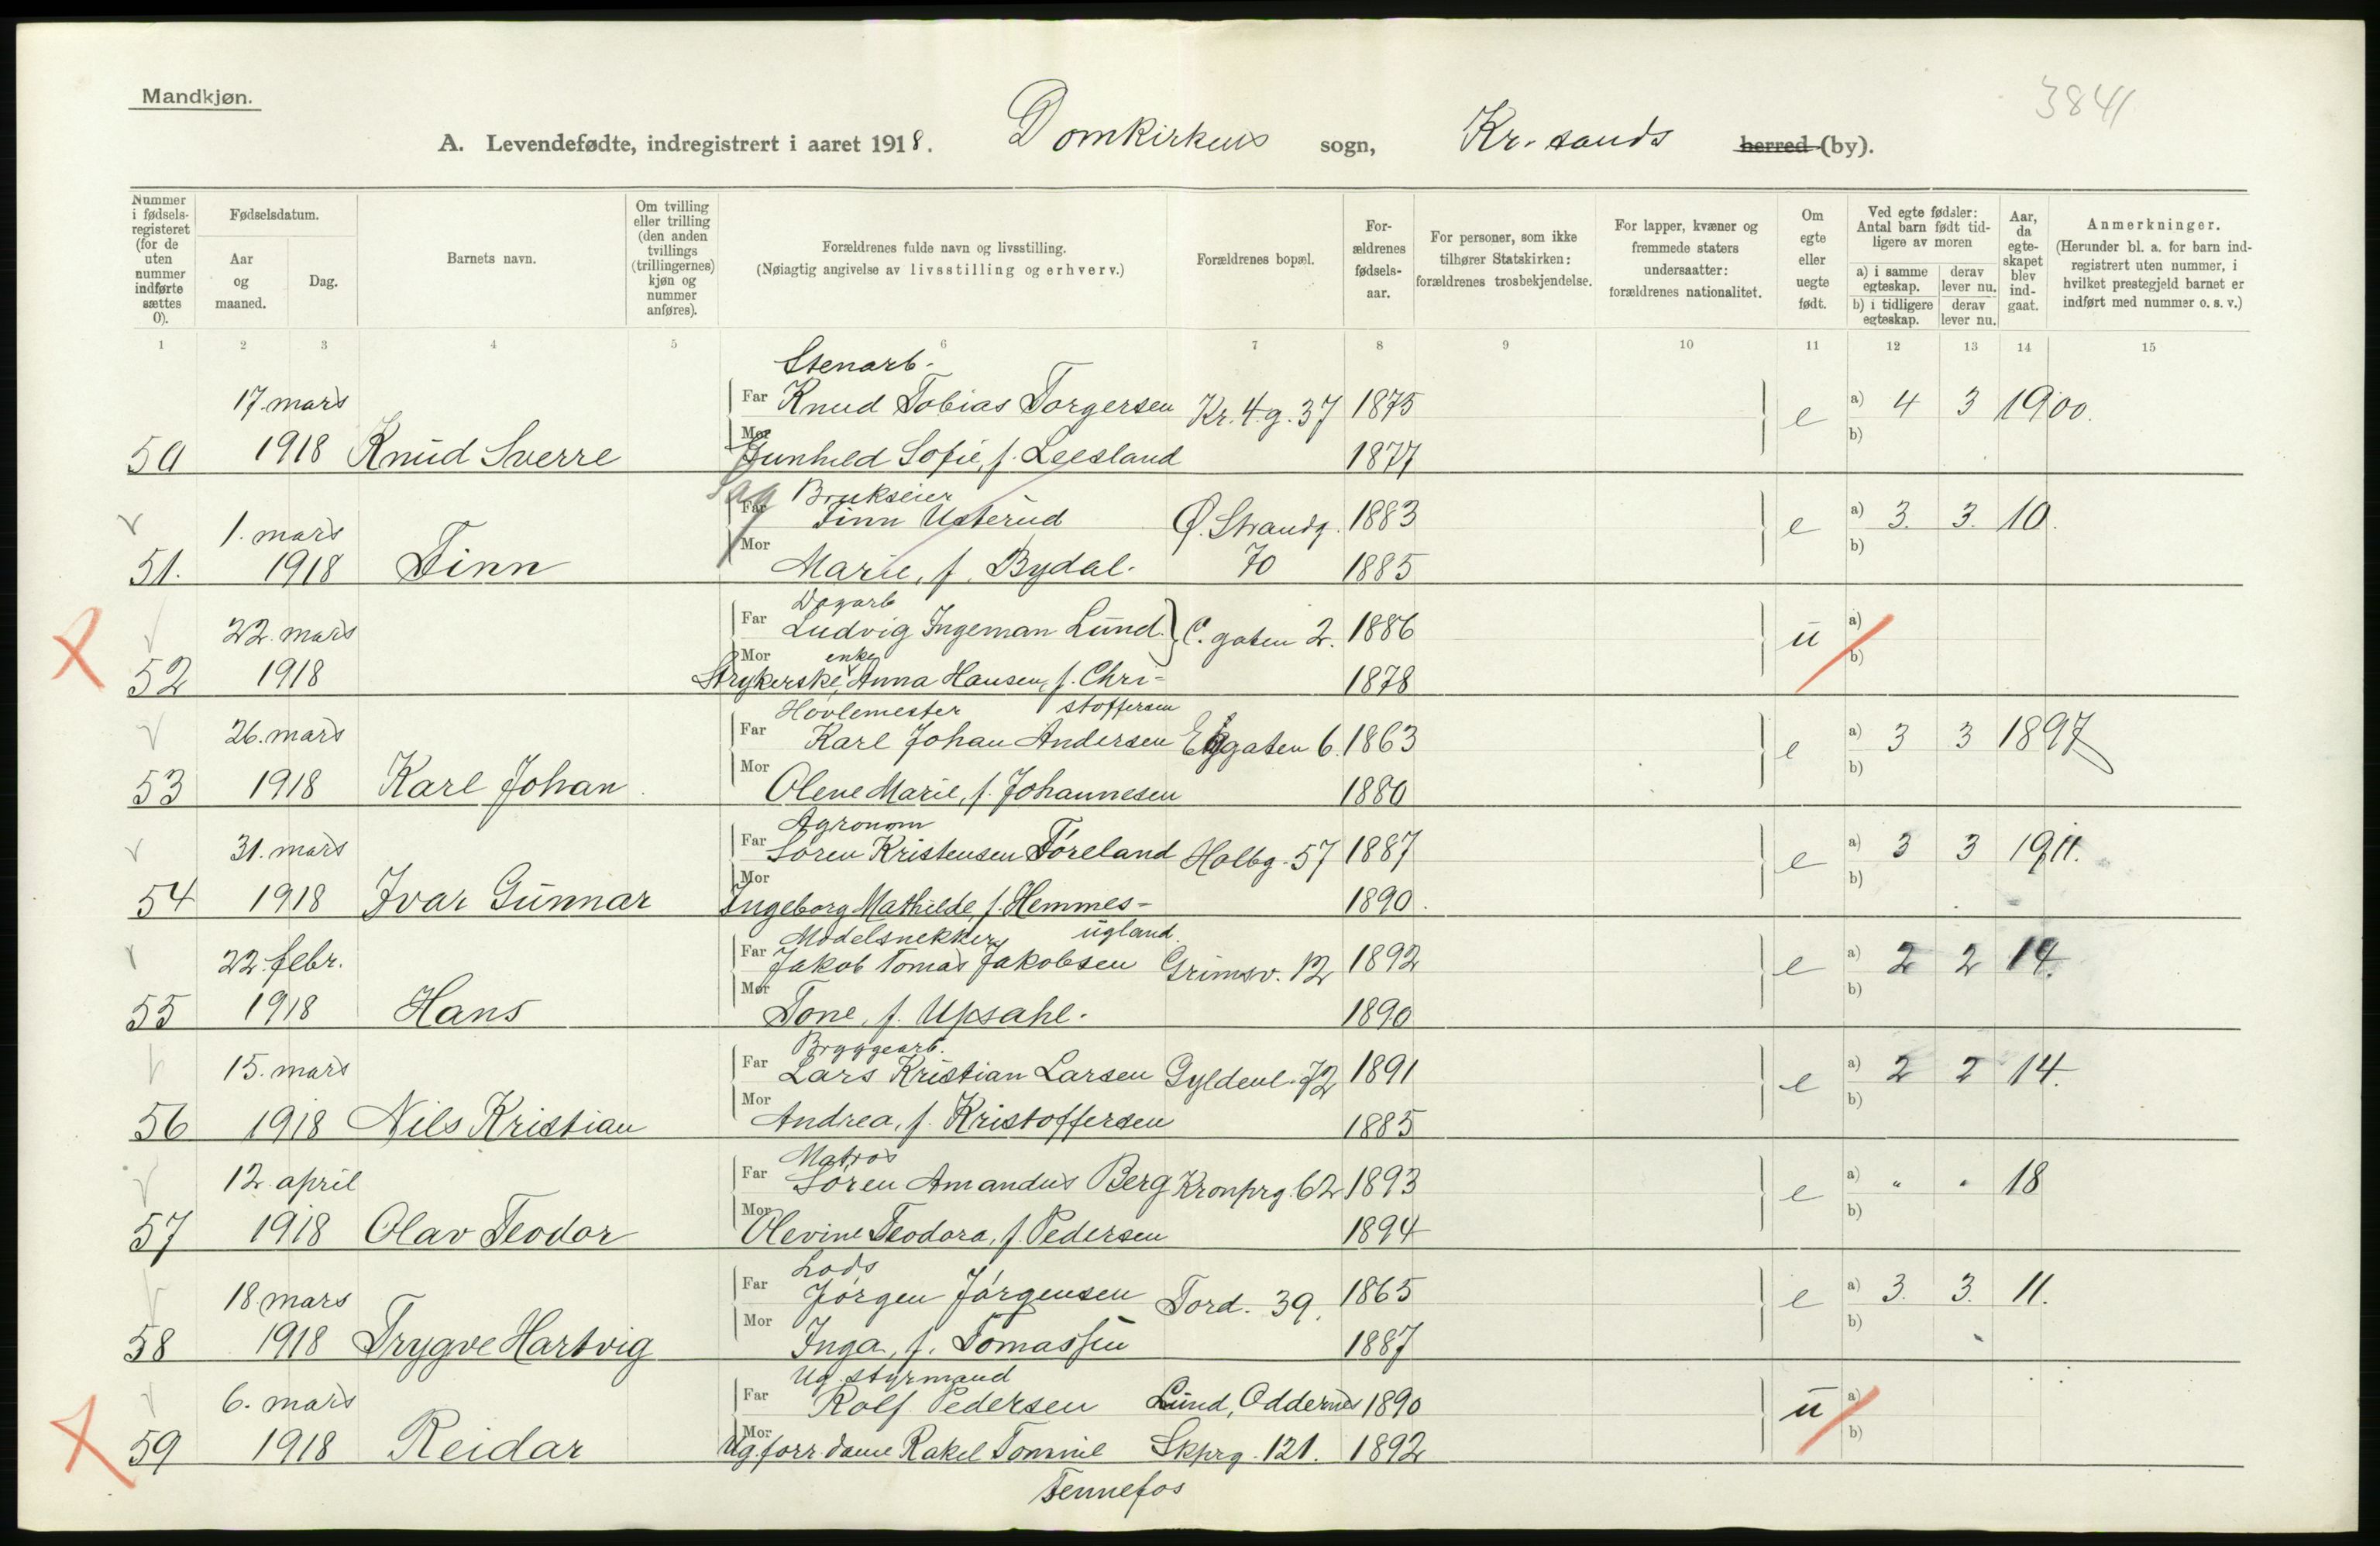 Mandkjøn.
3841
A. Levendefødte, indregistrert i aaret 1918. Domkirkens sogn, Kr.sands herred (by).
Nummer i fødsels-registeret (for de uten nummer indførte sættes 0).
Fødselsdatum.
Aar og maaned.
Dag.
Barnets navn.
Om tvilling eller trilling (den anden tvillings (trillingernes) kjøn og nummer anføres).
Forældrenes fulde navn og livsstilling.
(Nøiagtig angivelse av livsstilling og erhverv.)
Forældrenes bopæl.
For-ældrenes fødsels-aar.
For personer, som ikke tilhører Statskirken: forældrenes trosbekjendelse.
For lapper, kvæner og fremmede staters undersaatter: forældrenes nationalitet.
Om egte eller uegte født.
Ved egte fødsler: Antal barn født tid-ligere av moren
a) i samme egteskap. derav lever nu.
b) i tidligere egteskap. derav lever nu.
Aar, da egte-skapet blev ind-gaat.
Anmerkninger.
(Herunder bl. a. for barn ind-registrert uten nummer, i hvilket prestegjeld barnet er indført med nummer o. s. v.)
1 2 3 4 5 6 7 8 9 10 11 12 13 14 15
Stenarb.
17. mars Far Knud Tobias Torgersen Kr. 4. g. 37 1875 e a) 4 3 1900.
50 1918 Knud Sverre Mor Gunhild Sofie, f. Leesland 1877 b)
Sag Brukseier
1. mars Far Finn Usterud Ø. Strandg. 1883 e a) 3. 3. 10.
51. 1918 Finn Mor Marie, f. Bydal. 70 1885 b)
Dagarb
22. mars Far Ludvig Ingeman Lund. C. gaten 2. 1886 u a)
enke
52 1918 Mor Strykerske, Anna Hansen, f. Chri- 1878 b)
stoffersen
Hovlemester
26. mars Far Karl Johan Andersen Elvegaten 6. 1863 e a) 3 3 1897
53 1918 Karl Johan. Mor Olene Marie, f. Johannesen 1880 b)
Agronom
31. mars Far Søren Kristensen Føreland Holbg. 57 1887 e a) 3 3 1911.
54 1918 Ivar Gunnar Mor Ingeborg Mathilde, f. Hemmes- 1890. b)
ugland.
Modelsnekker
22. febr. Far Jakob Tomas Jakobsen Grimsv. 12 1892 e a) 2 2 14.
55 1918 Hans Mor Tone, f. Upsahl. 1890 b)
Bryggearb.
15. mars Far Lars Kristian Larsen Gyldenl. 72 1891 e a) 2 2 14.
56 1918 Nils Kristian Mor Andrea, f. Kristoffersen 1885 b)
Matros
12. april Far Søren Amandus Berg Kronprg. 62 1893 e a) " " 18
57 1918 Olav Teodor Mor Olevine Teodora, f. Pedersen 1894 b)
Lods
18. mars Far Jørgen Jørgensen Tord. 39. 1865 e a) 3. 3. 11.
58 1918 Trygve Hartvig Mor Inga, f. Tomassen 1887 b)
Ug. styrmand
6. mars Far Rolf Pedersen Lund, Oddernes 1890 u a)
59 1918 Reidar Mor Ug. forr. dame Rakel Tomine Skprg. 121. 1892 b)
Tennefos